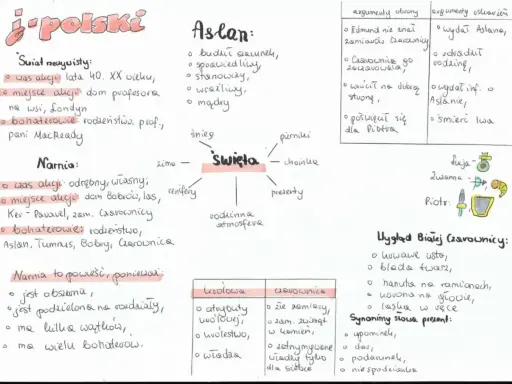 j. polski
Świat rzeczywisty:
czas akcji: lata 40. XX wieku,
miejsce akcji: dom profesora
na wsi, Londyn
bohaterowie: rodzeństwo, prof.,
pani MacReady
Narnia:
czas akcji: odrębny, własny;
miejsce akcji: dom Bobrów, las,
Ker-Paravel, zam. Czarownicy
bohaterowie: rodzeństwo,
Aslan, Tumnus, Bobry, Czarownica
Narnia to powieść, ponieważ:
jest obszerna,
jest podzielona na rozdziały,
ma kilka wątków,
ma wielu bohaterów.
Aslan:
budził szacunek,
sprawiedliwy,
stanowczy,
wrażliwy,
mądry
święta
śnieg
pierniki
zima
choinka
renifery
prezenty
rodzinna
atmosfera
królowa
atrybuty
królowej,
królestwo,
władza
czarownica
złe zamiary,
zam. zwierząt
w kamień,
władzy tylko
dla siebie
argumenty obrony
Edmund nie znał
zamiarów Czarownicy
Czarownica go
zaczarowała,
wrócił na dobrą
stronę,
poświęcił się
dla Piotra
argumenty oskarżeń
wydał Aslana,
zdradził
rodzinę,
wydał inf. o
Aslanie,
śmierć lwa
Łucja:
Zuzanna:
Piotr:
Wygląd Białej Czarownicy:
krwawe usta,
blada twarz,
narzuta na ramionach,
korona na głowie,
laska w ręce
Synonimy słowa prezent:
upominek,
dar,
podarunek,
niespodzianka